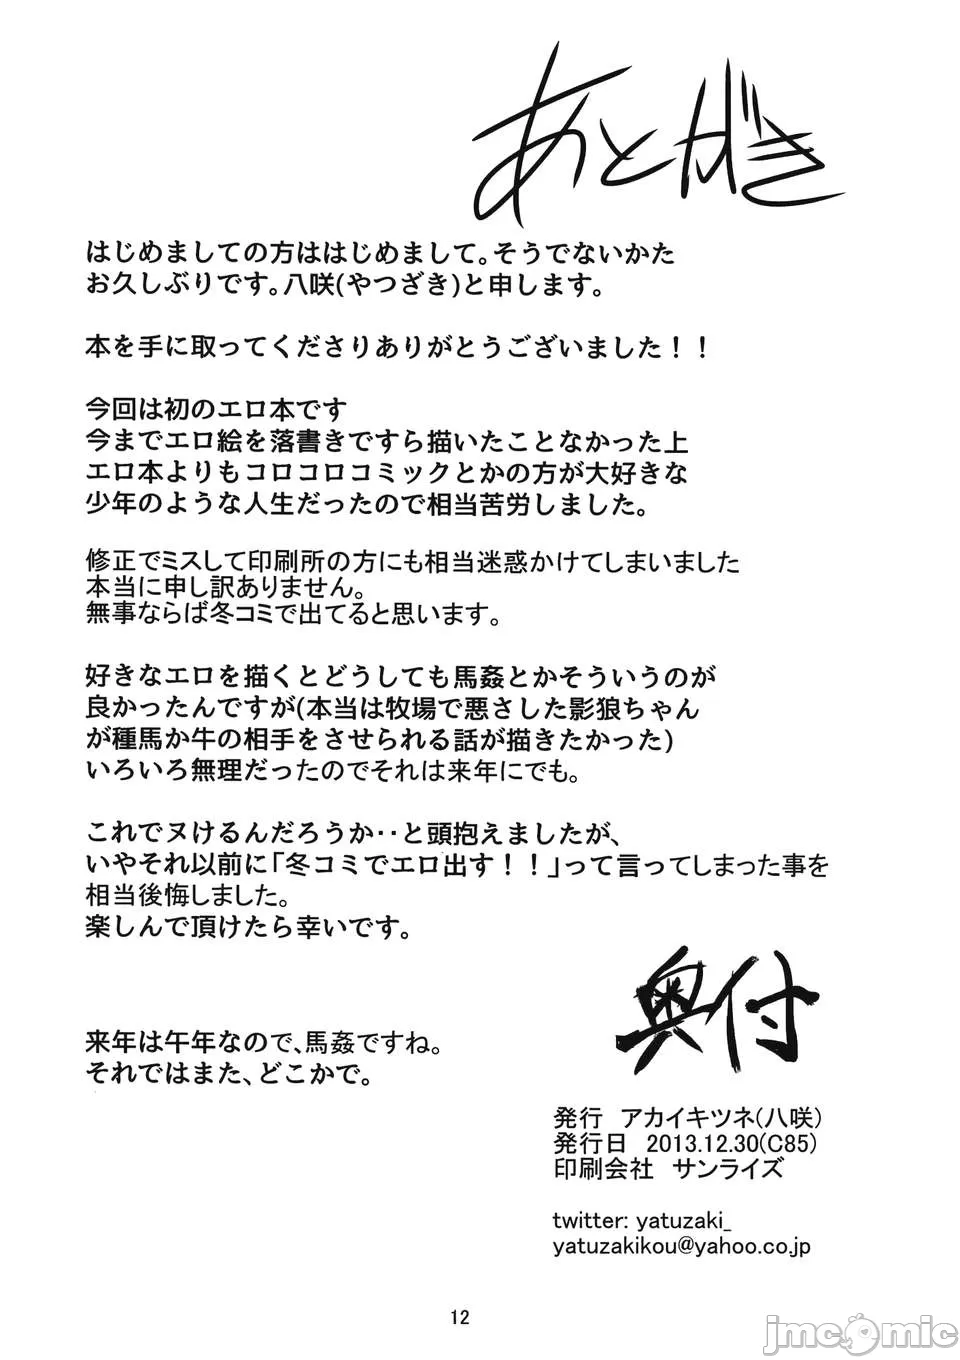 あとがき
はじめましての方ははじめまして。そうでないかた
お久しぶりです。八咲(やつざき)と申します。
本を手に取ってくださりありがとうございました！！
今回は初のエロ本です
今までエロ絵を落書きですら描いたことなかった上
エロ本よりもコロコロコミックとかの方が大好きな
少年のような人生だったので相当苦労しました。
修正でミスして印刷所の方にも相当迷惑かけてしまいました
本当に申し訳ありません。
無事ならば冬コミで出てると思います。
好きなエロを描くとどうしても馬姦とかそういうのが
良かったんですが(本当は牧場で悪さした影狼ちゃん
が種馬か牛の相手をさせられる話が描きたかった)
いろいろ無理だったのでそれは来年にでも。
これでヌけるんだろうか・・と頭抱えましたが、
いやそれ以前に「冬コミでエロ出す！！」って言ってしまった事を
相当後悔しました。
楽しんで頂けたら幸いです。
来年は午年なので、馬姦ですね。
それではまた、どこかで。
奥付
発行　アカイキツネ(八咲)
発行日　2013.12.30(C85)
印刷会社　サンライズ
twitter: yatuzaki_
yatuzakikou@yahoo.co.jp
12
jmcomic